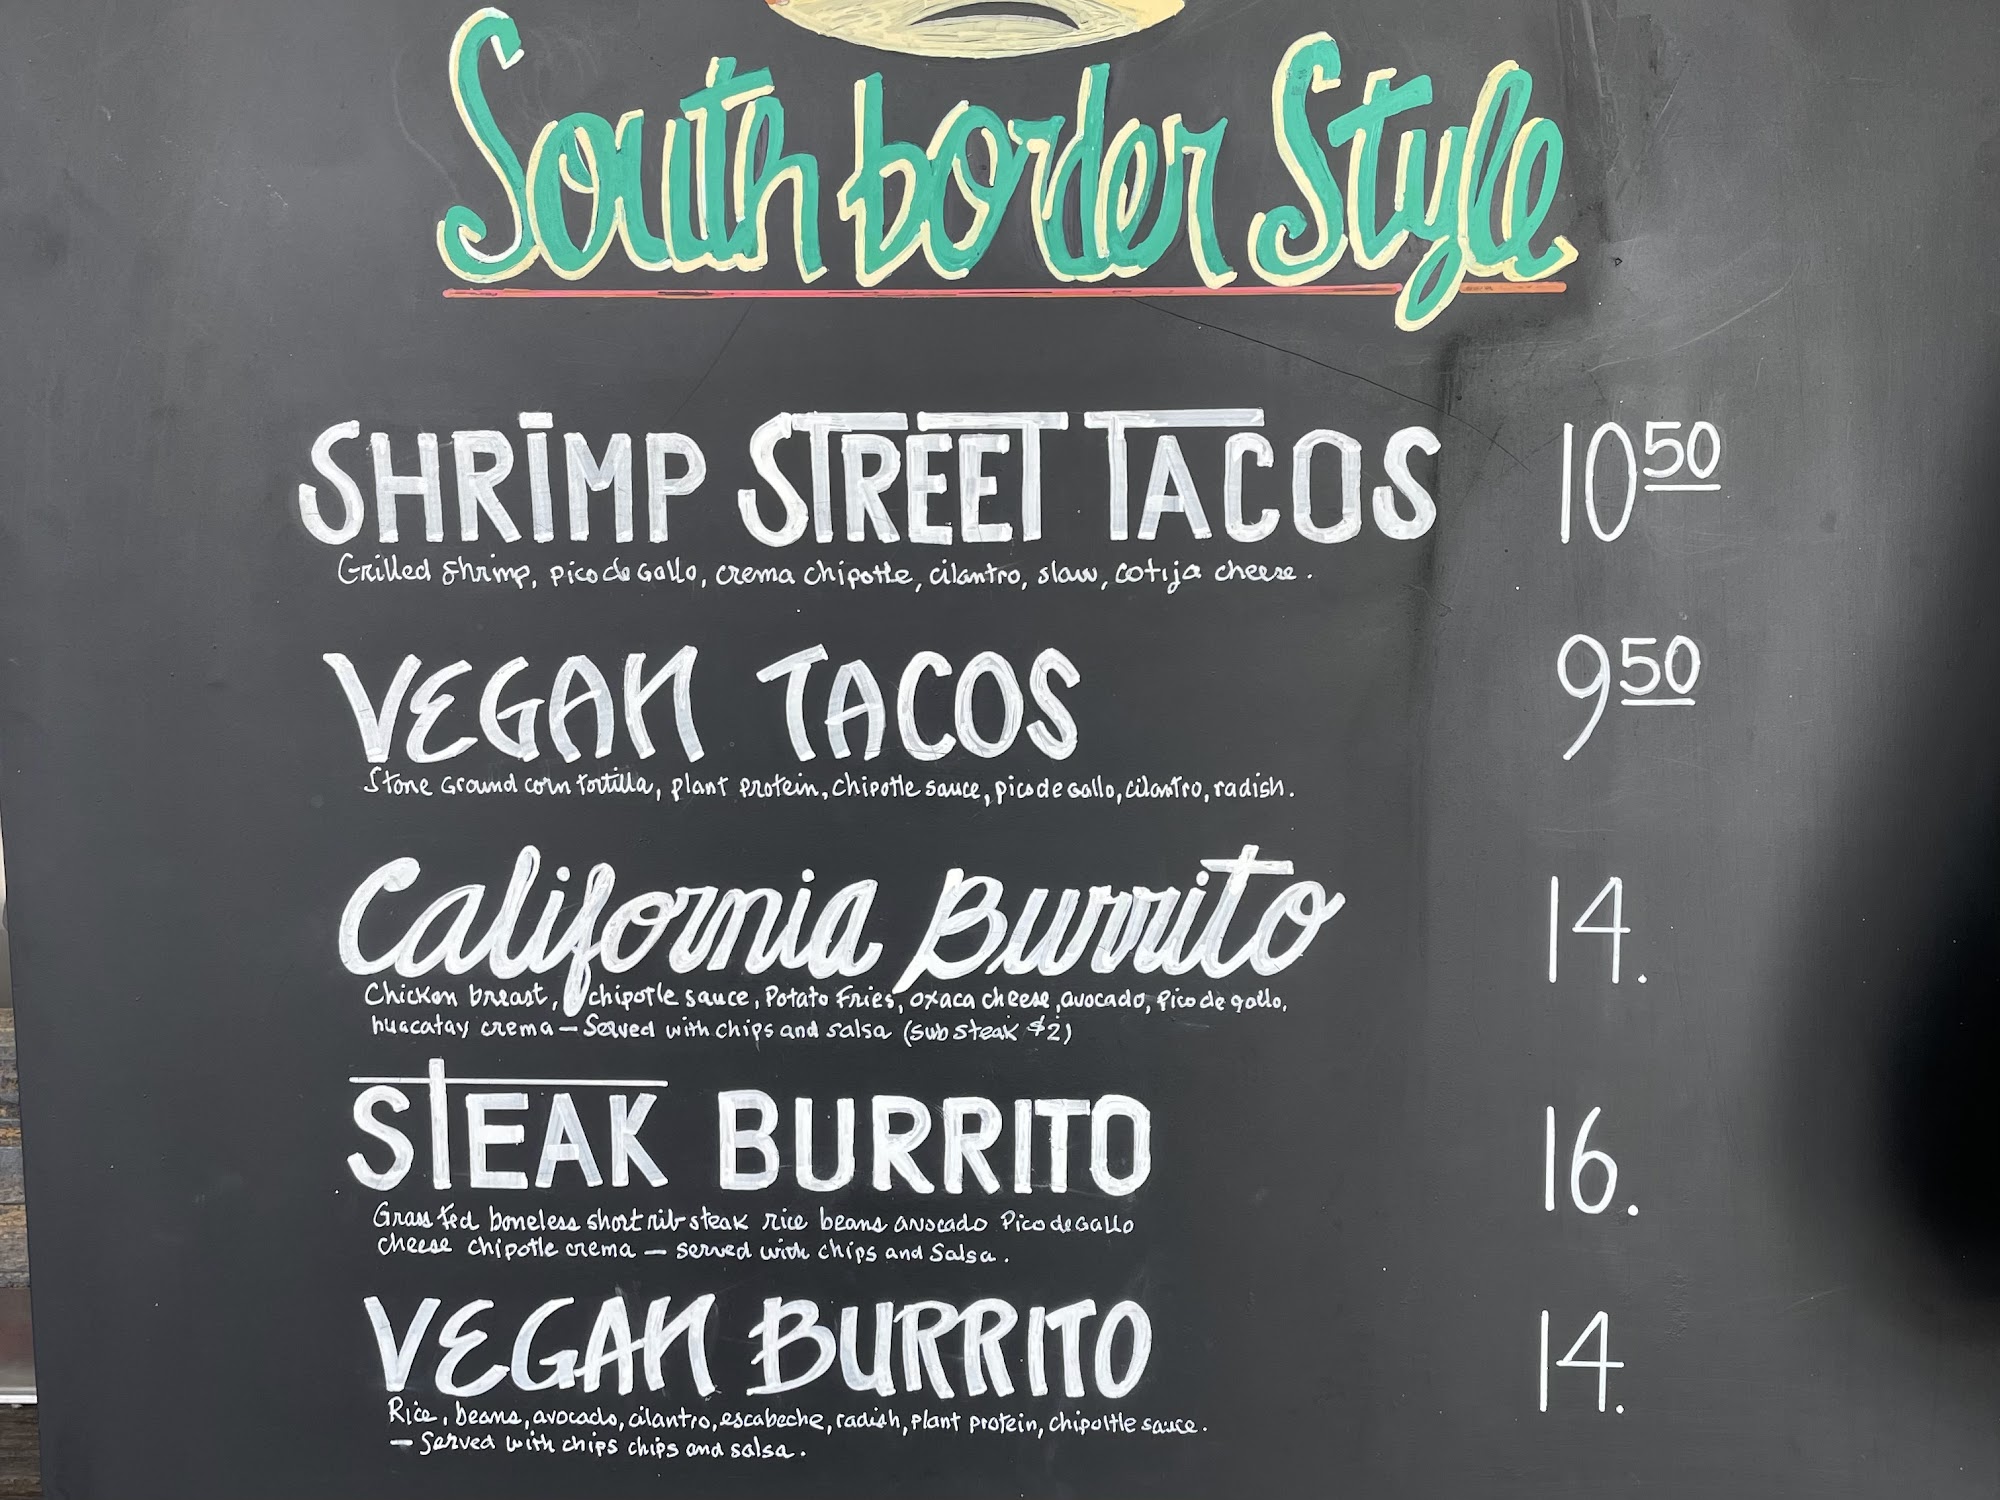 South border Style
SHRIMP STREET TACOS 10 50
Grilled shrimp, pico de Gallo, crema chipotle, cilantro, slaw, cotija cheese.
VEGAN TACOS 9 50
Stone Ground corn tortilla, plant protein, chipotle sauce, pico de Gallo, cilantro, radish.
California Burrito 14.
Chicken breast, chipotle sauce, Potato Fries, oxaca cheese, avocado, Pico de gallo,
huacatay crema — Served with chips and salsa (sub steak $2)
STEAK BURRITO 16.
Grass fed boneless short rib steak rice beans avocado Pico de Gallo
cheese chipotle crema — served with chips and Salsa.
VEGAN BURRITO 14.
Rice, beans, avocado, cilantro, escabeche, radish, plant protein, chipoltle sauce.
— Served with chips chips and salsa.